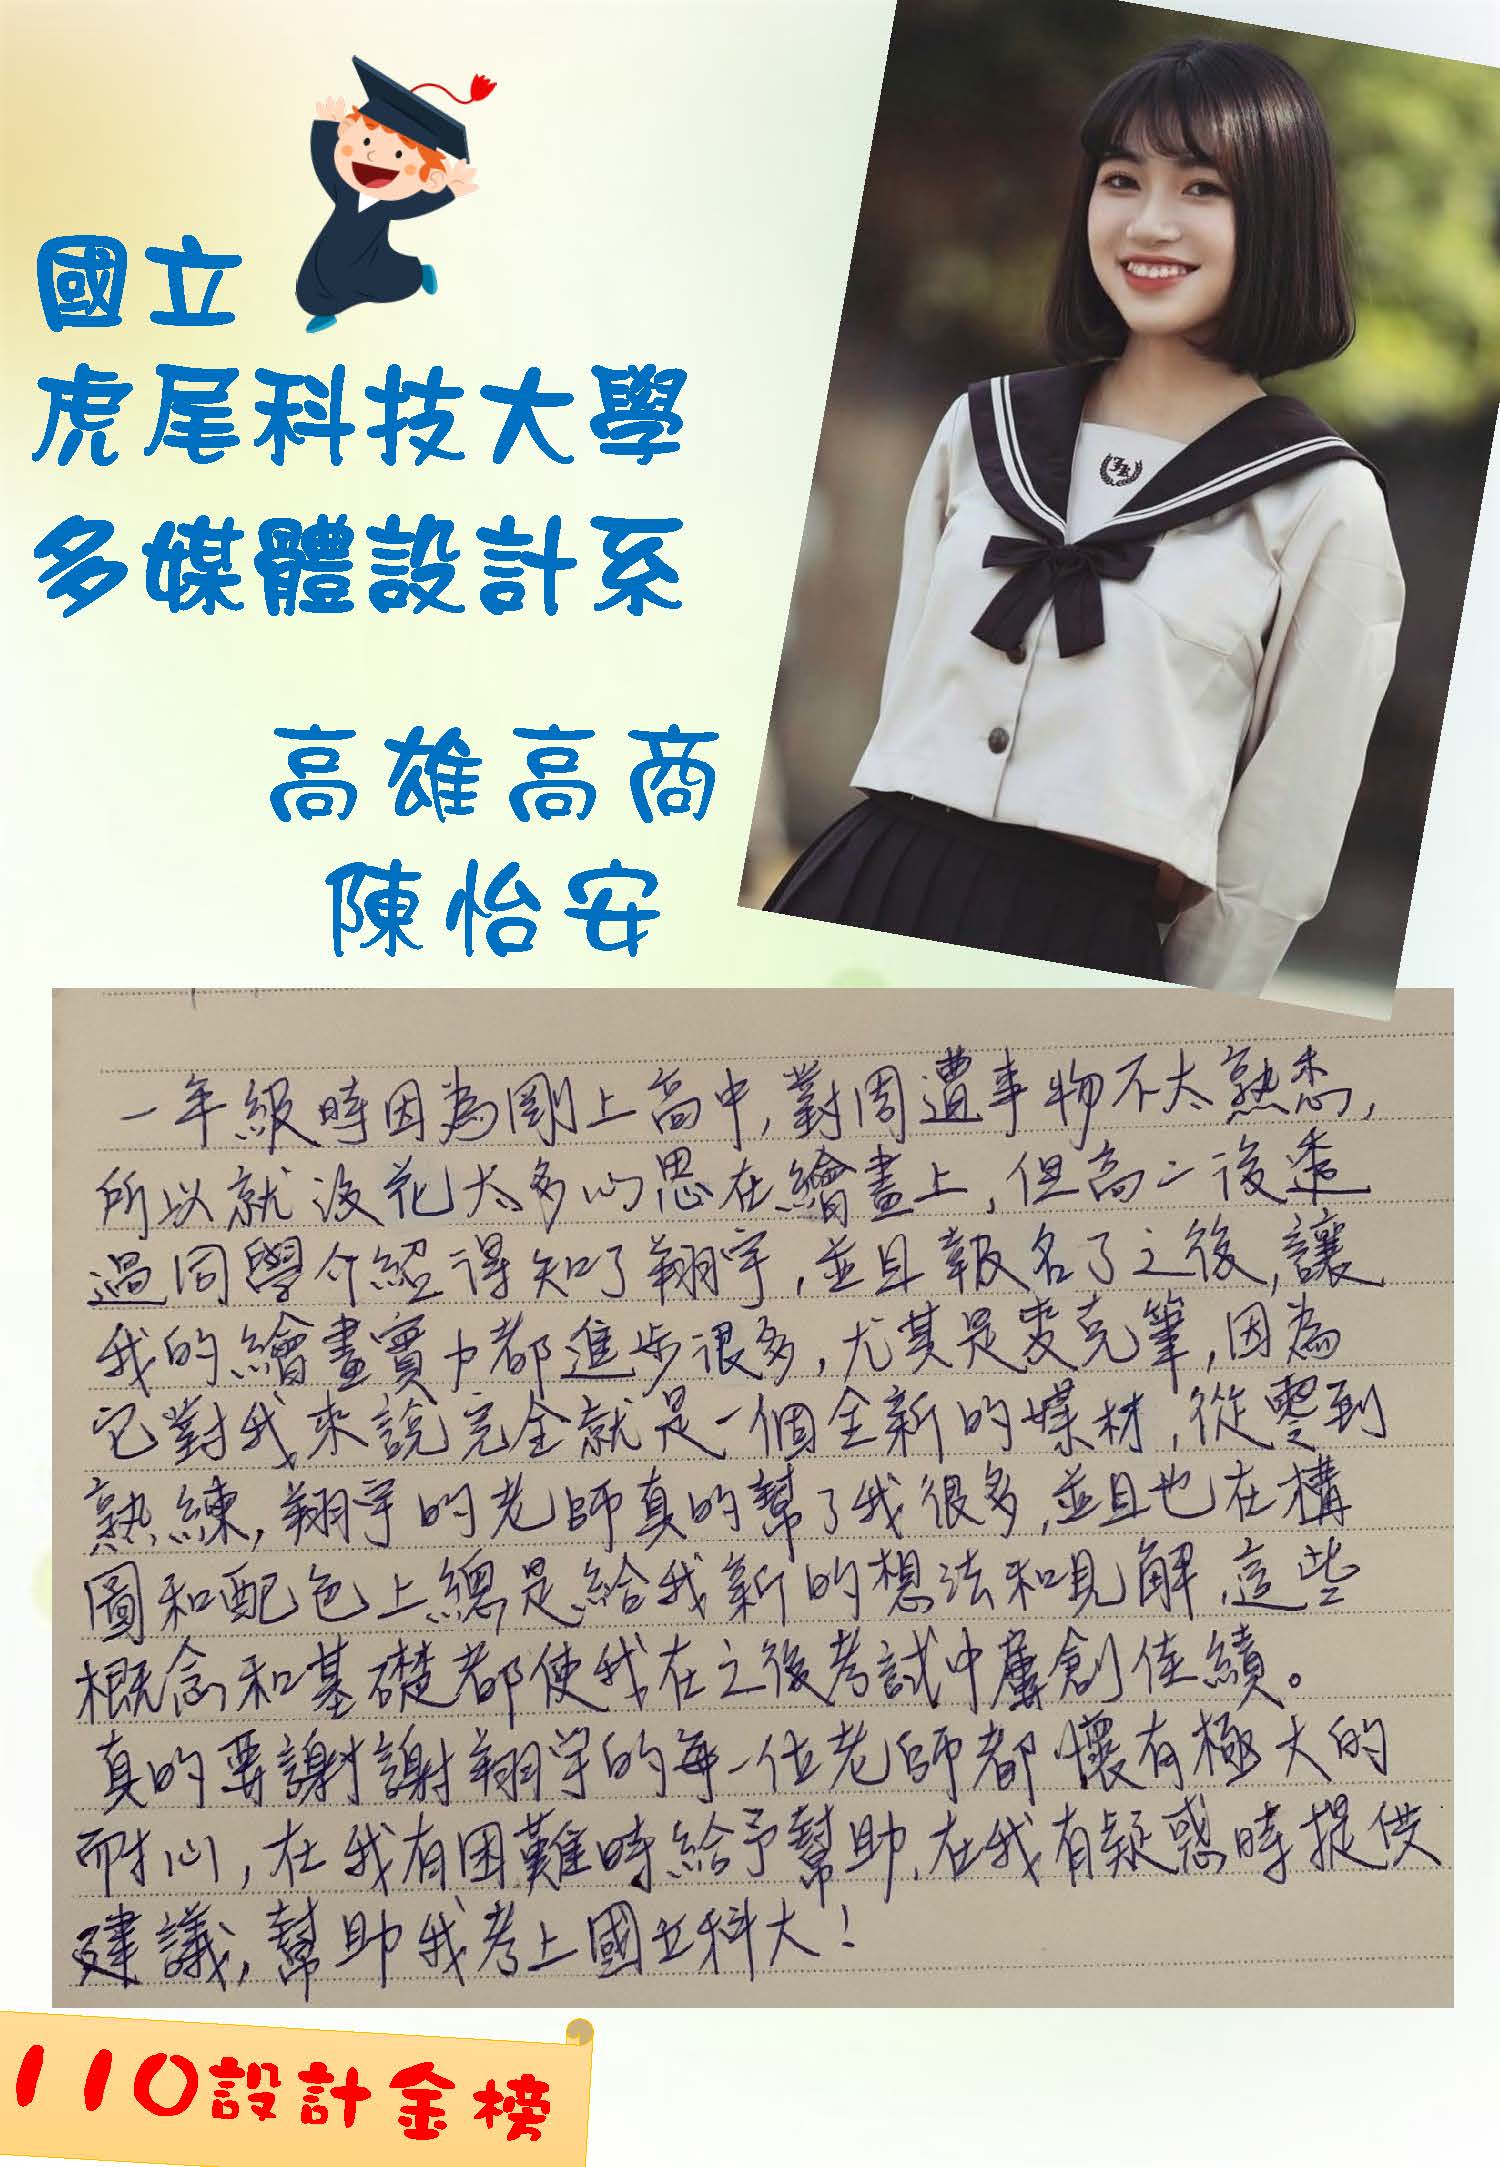 國立
虎尾科技大學
多媒體設計系
高雄高商
陳怡安
一年級時因為剛上高中,對周遭事物不太熟悉,
所以就沒花太多心思在繪畫上,但高二後透
過同學介紹得知了翔宇,並且報名了之後,讓
我的繪畫實力都進步很多,尤其是麥克筆,因為
它對我來說完全就是一個全新的媒材,從零到
熟練,翔宇的老師真的幫了我很多,並且也在構
圖和配色上總是給我新的想法和見解,這些
概念和基礎都使我在之後考試中屢創佳績。
真的要謝謝翔宇的每一位老師都懷有極大的
耐心,在我有困難時給予幫助,在我有疑惑時提供
建議,幫助我考上國立科大!
110設計金榜